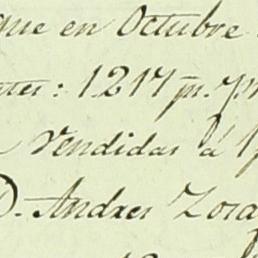 que en Octubre
tes: 1217 m.
vendidas á
D. Andres Zora